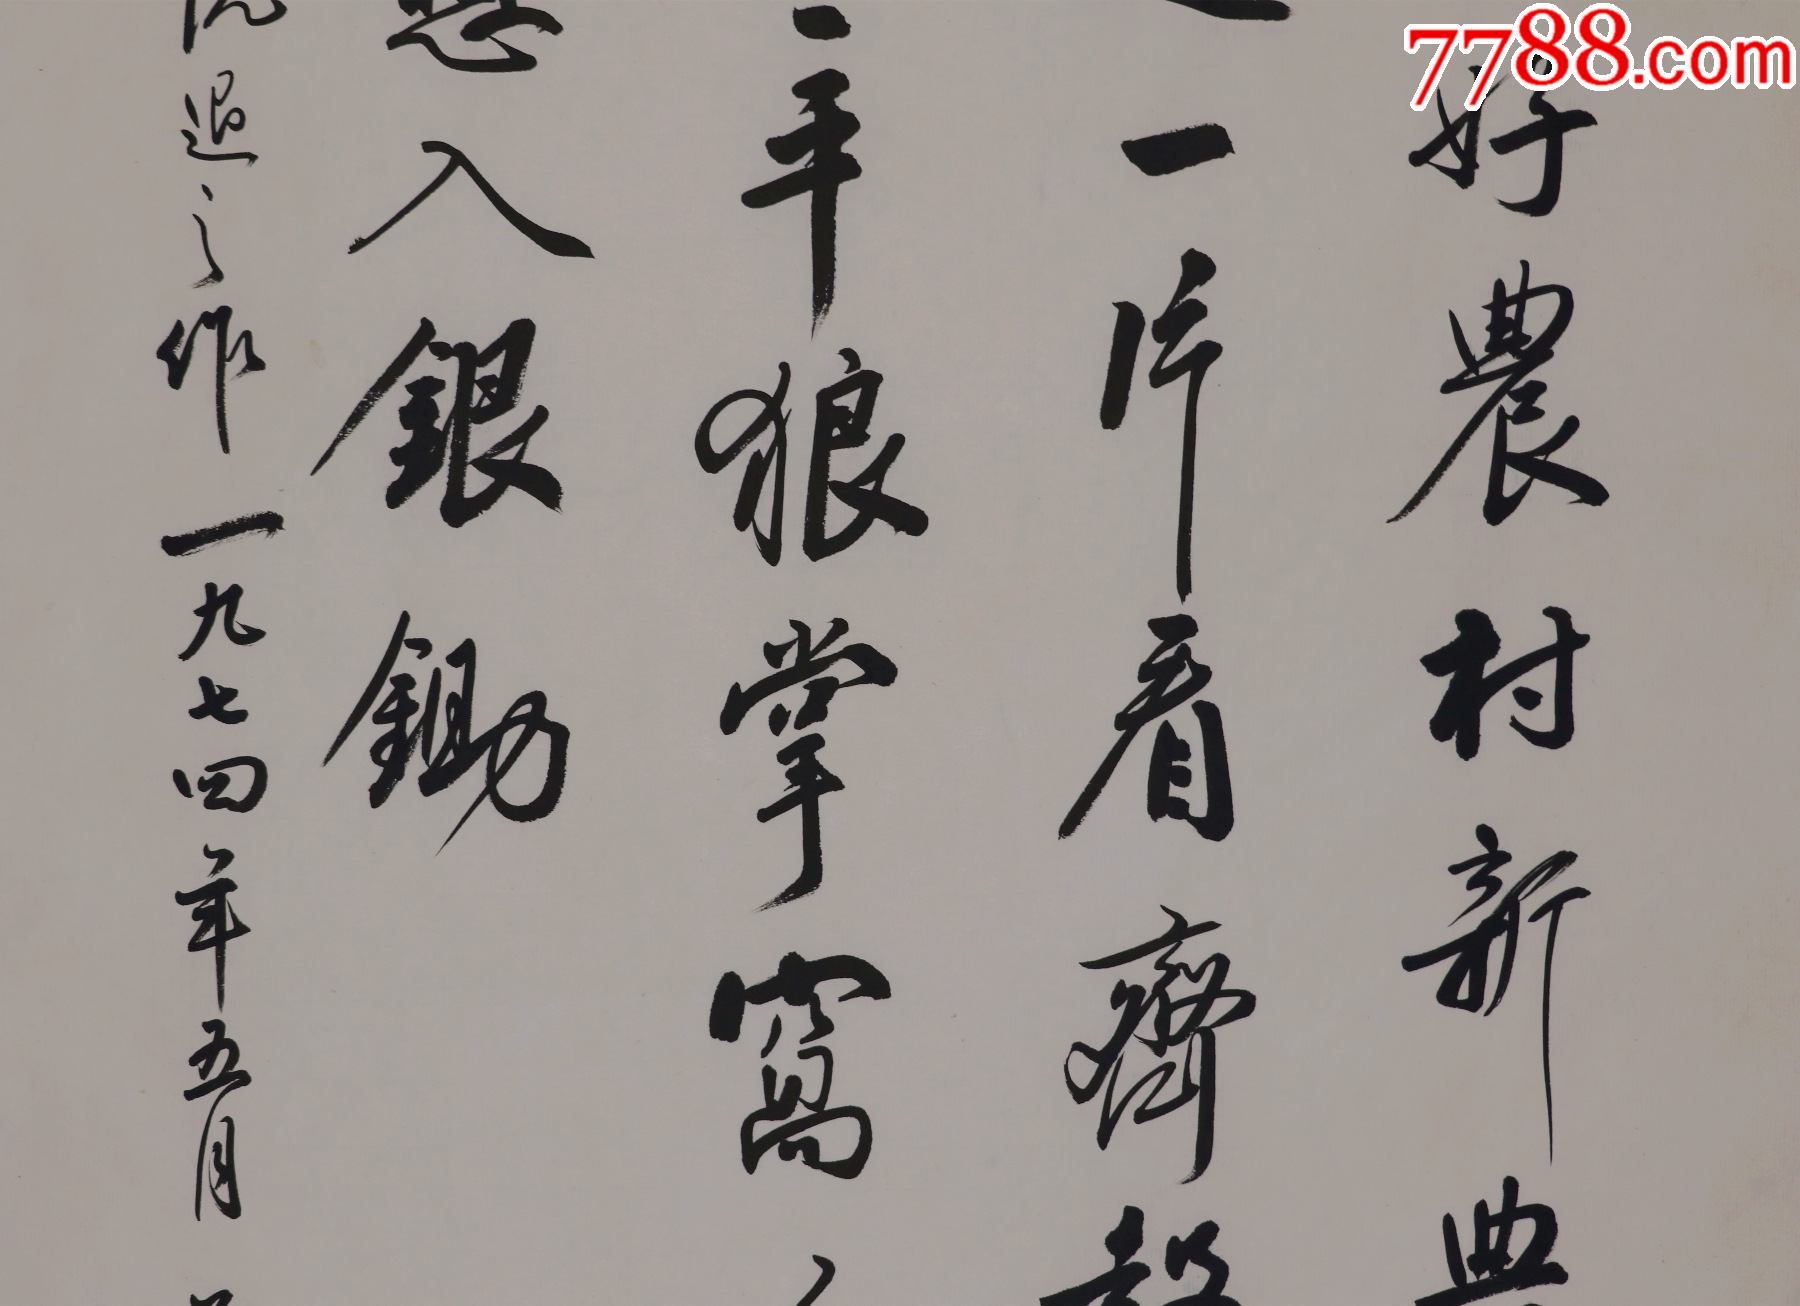 7788.com
好農村新典
一片看齊
平狼掌窩
入銀鋤
退之作一九七四年五月